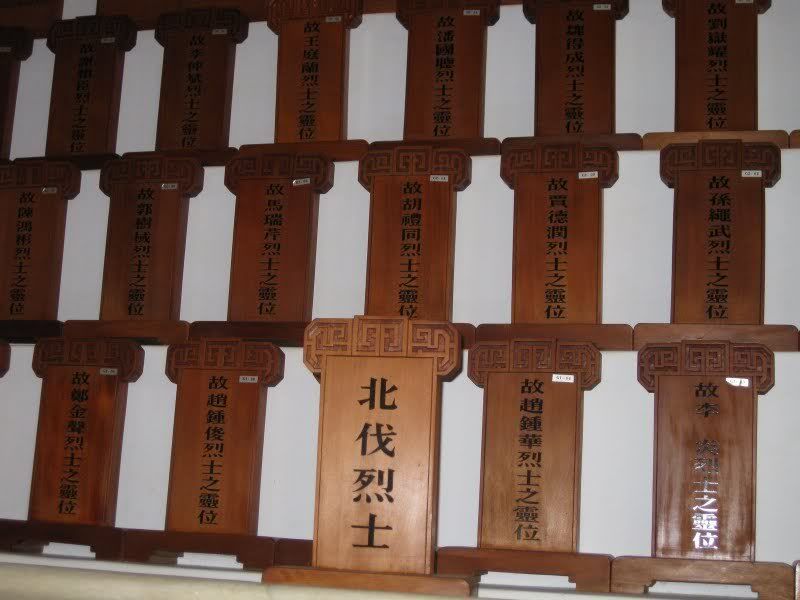 故王庭蘭烈士之靈位
故潘國聰烈士之靈位
故魏得成烈士之靈位
故劉嶽耀烈士之靈位
故陳鴻彬烈士之靈位
故郭樹棫烈士之靈位
故馬瑞芹烈士之靈位
故胡禮同烈士之靈位
故賈德潤烈士之靈位
故孫繩武烈士之靈位
故鄭金聲烈士之靈位
故趙鍾俊烈士之靈位
北伐烈士
故趙鍾華烈士之靈位
故李 炎烈士之靈位